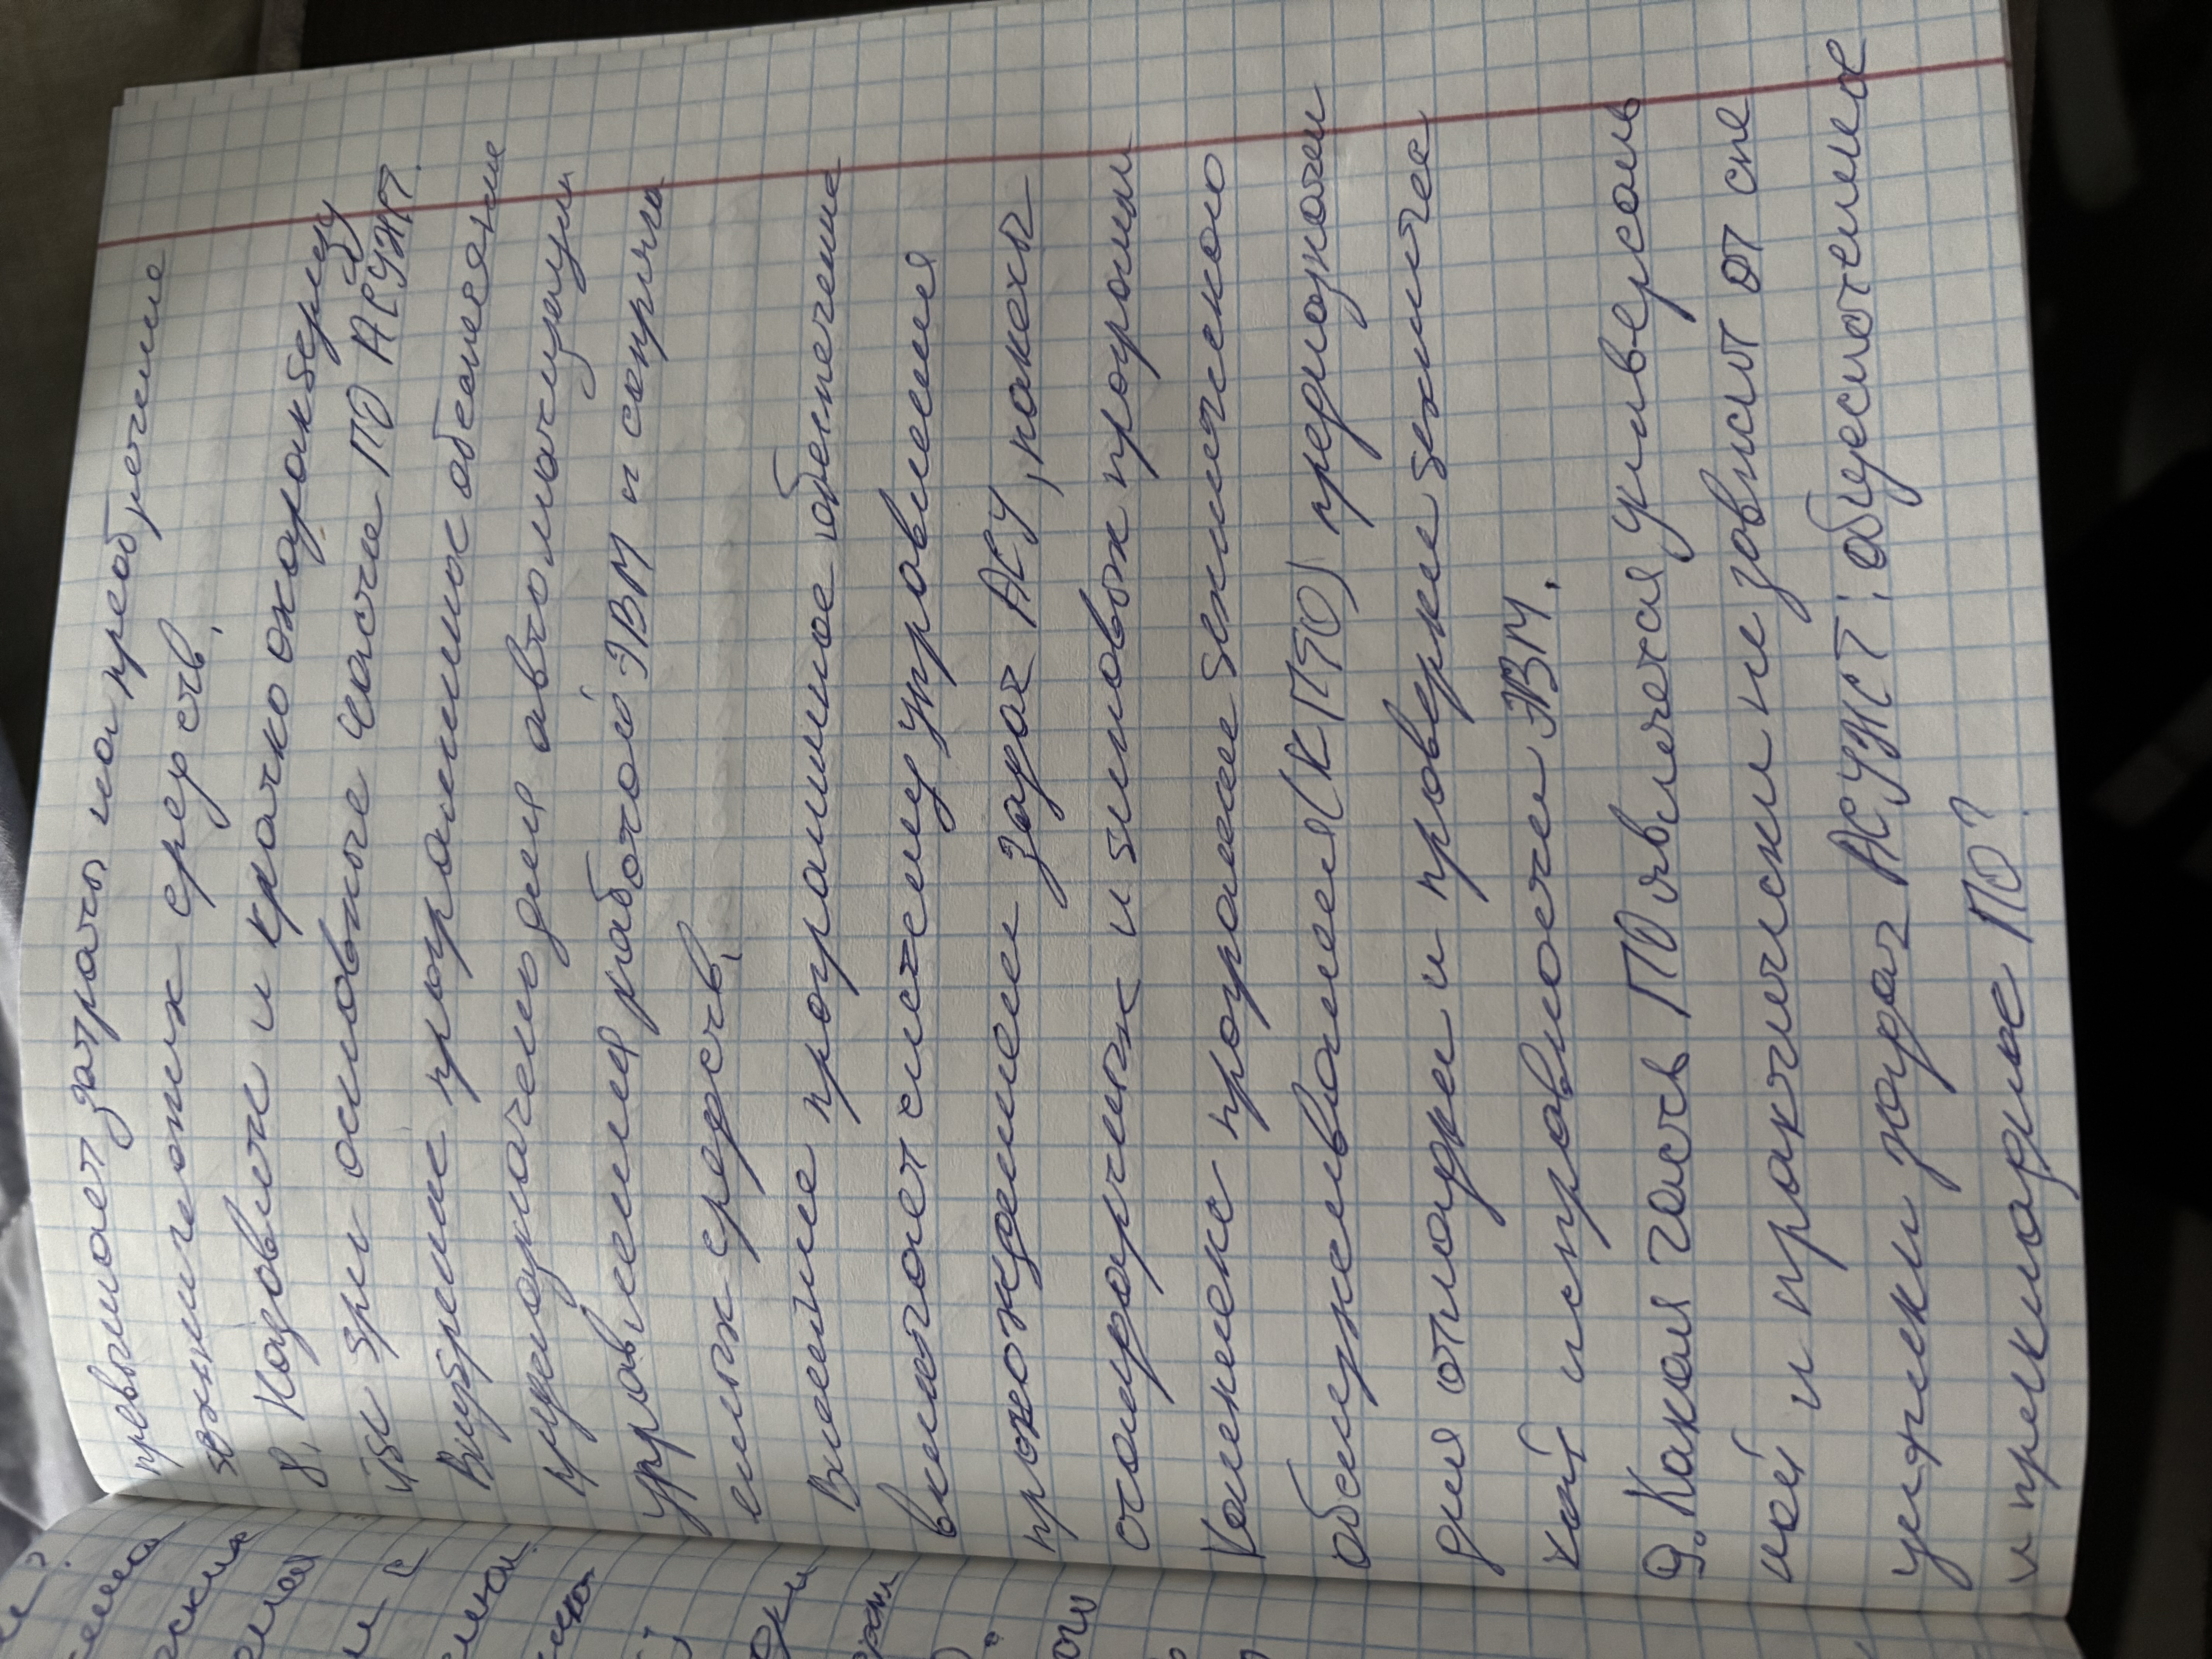 превышает затраты на преобретение
технических средств.
8. Назовите и кратко охарактберизу
йте три основные части ПО АСУЖТ.
Внутренние программное обеспечение
предназначено для автоматизации
управления работой ЭВМ и сопряга
емых средств.
Внешние программное обеспечение
включает систему управления
прохождением задач АСУ, пакеты
стандартных и типовых программ
Комплекс программ технического
обслуживания (КПТО) предназначен
для отладки и проверки техничес
кой исправности ЭВМ.
9. Какая часть ПО является универсаль
ной и практически не зависит от спе
цифики задач АСУЖТ: общесистемное
и прикладное ПО?